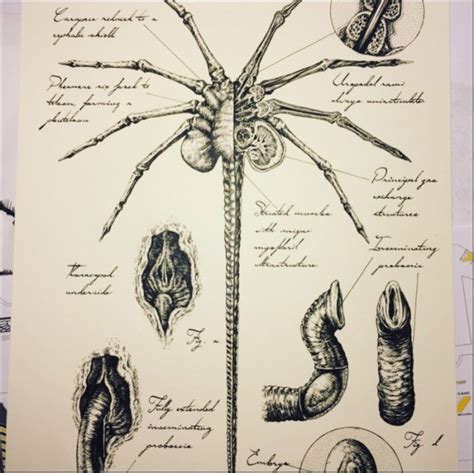 Carapace reduced to a
cephalic shield
Pleomere six fused to
telson, forming a
pleotelson
Uropodal rami
always uniarticulate
Principal gas
exchange
structures
Striated muscle
with unique
myofibril
ultrastructure
Inseminating
proboscis
Thoracopod
underside
Fig a
Fully extended
inseminating
proboscis
Fig d
Embryo